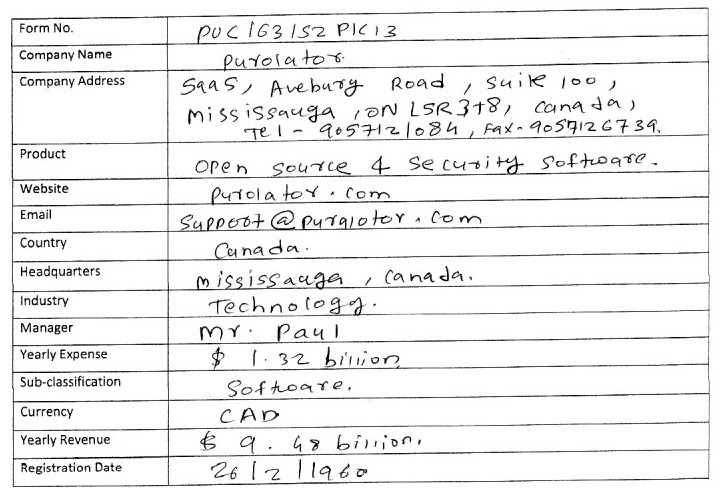 Form No. PUC 163152 PIC13
Company Name Purolator
Company Address Saas, Avebury Road, Suite 100,
Mississauga, ON L5R 3T8, Canada,
Tel - 9057121084, Fax - 9057126739.
Product Open source & security software.
Website Purolator.com
Email Support@puralotor.com
Country Canada.
Headquarters Mississauga, Canada.
Industry Technology.
Manager Mr. Paul
Yearly Expense $ 1.32 billion
Sub-classification Software.
Currency CAD
Yearly Revenue $ 9.48 billion.
Registration Date 26/2/1960